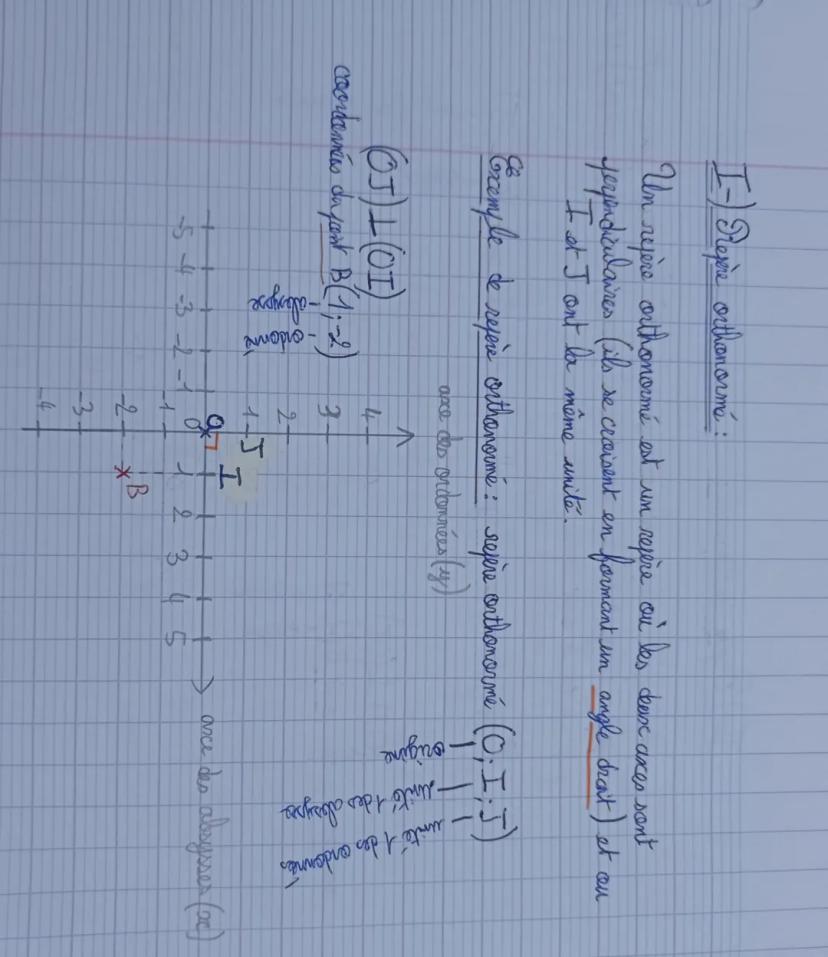 I-) Repère orthonormé :
Un repère orthonormé est un repère où les deux axes sont
perpendiculaires (ils se croisent en formant un angle droit) et où
I et J ont la même unité.
Exemple de repère orthonormé : repère orthonormé (O; I; J)
origine
unité 1 des abscysse
unité 1 des ordonnés
axe des ordonnées (y)
(OJ)⊥(OI)
coordonnées du point B(1;-2)
abscysse
ordonné
4
3
2
1 J
I
O
-5 -4 -3 -2 -1 0 1 2 3 4 5
axe des abscysses (x)
-1
-2
B
-3
-4